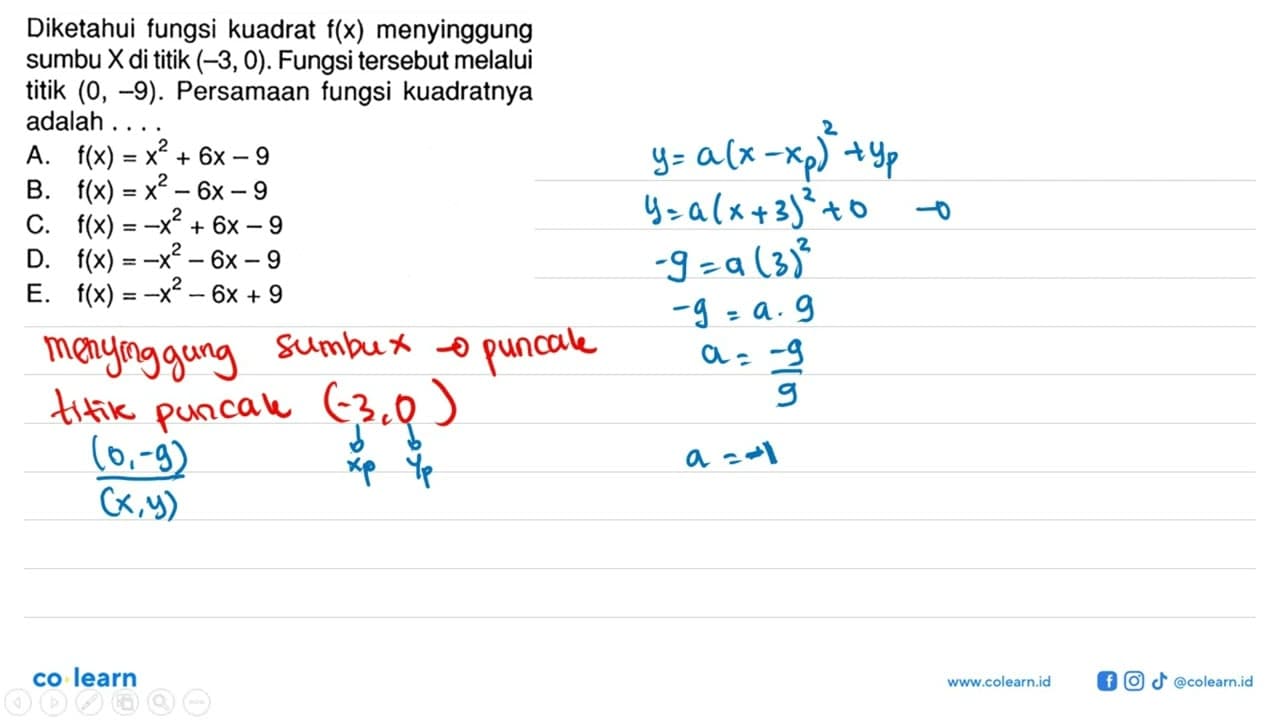 Diketahui fungsi kuadrat f(x) menyinggung
sumbu X di titik (–3, 0). Fungsi tersebut melalui
titik (0, –9). Persamaan fungsi kuadratnya
adalah . . . .
A. f(x) = x² + 6x – 9
B. f(x) = x² – 6x – 9
C. f(x) = –x² + 6x – 9
D. f(x) = –x² – 6x – 9
E. f(x) = –x² – 6x + 9
menyinggung sumbu x → puncak
titik puncak (-3,0)
xp yp
(0,-9)
(x,y)
y = a(x - xp)² + yp
y = a(x + 3)² + 0 →
-9 = a(3)²
-9 = a . 9
a = -9/9
a = -1
co learn
www.colearn.id
@colearn.id